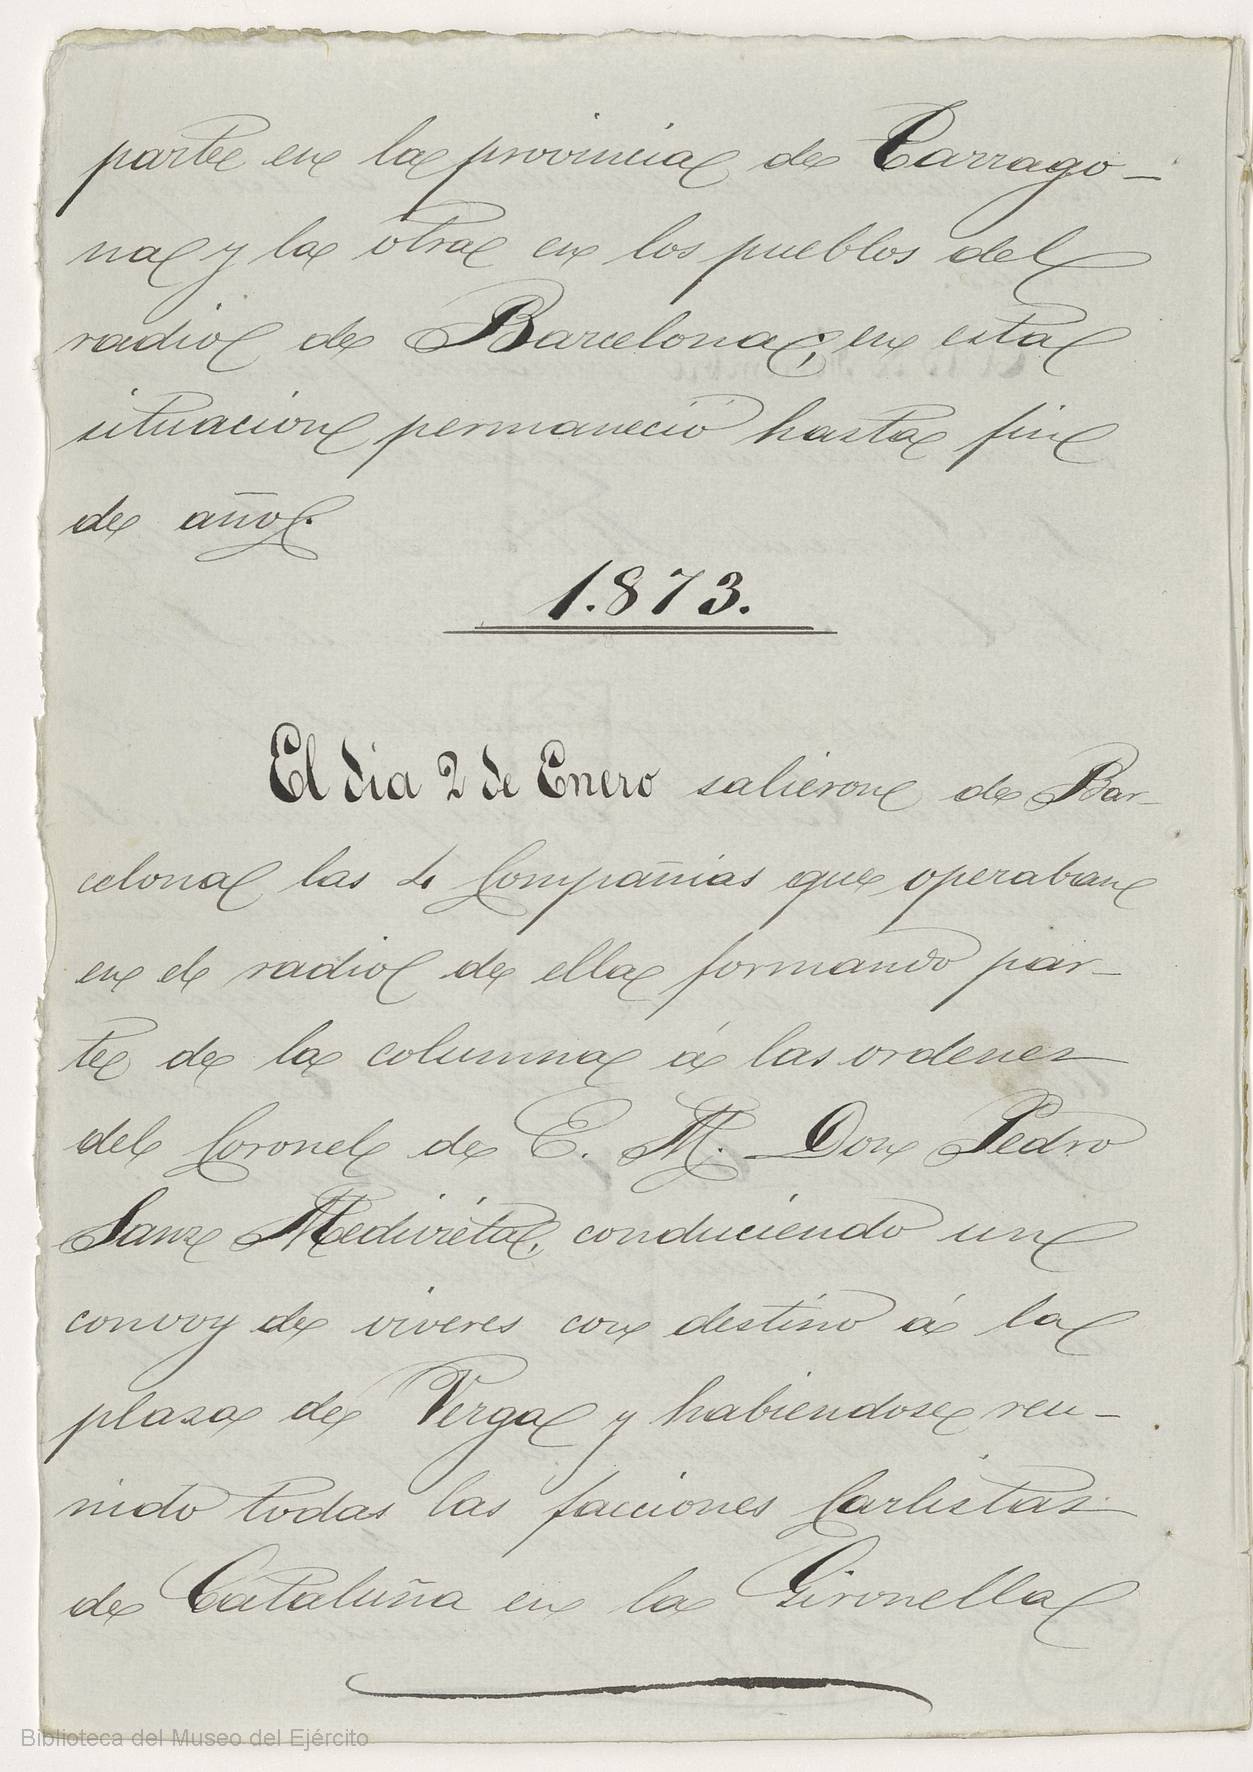 parte en la provincia de Tarrago-
na y la otra en los pueblos del
radio de Barcelona; en esta
situacion permaneció hasta fin
de año.
1.873.
El dia 2 de Enero salieron de Bar-
celona las 4 Compañias que operaban
en el radio de ella formando par-
te de la columna á las ordenes
del Coronel de E. M. Don Pedro
Sanz Medivieta, conduciendo un
convoy de viveres con destino á la
plaza de Verga y habiendose reu-
nido todas las facciones Carlistas
de Cataluña en la Gironella
Biblioteca del Museo del Ejército